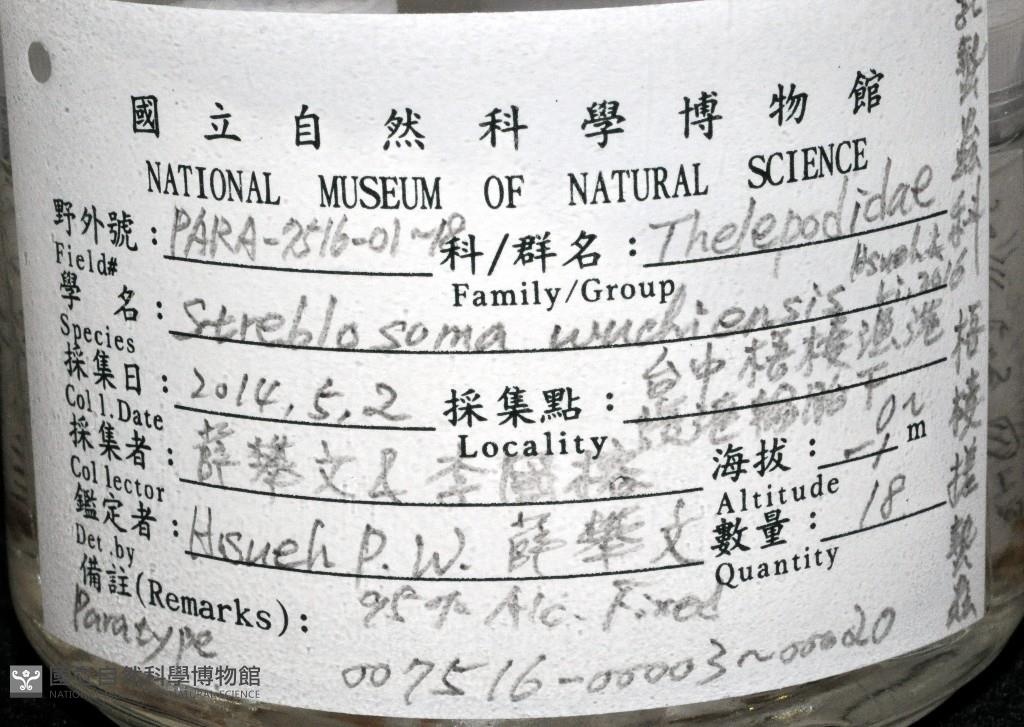 國立自然科學博物館
NATIONAL MUSEUM OF NATURAL SCIENCE
野外號：PARA-7516-01~18 科/群名：Thelepodidae
Field# Family/Group
學 名：Streblosoma wuchiensis Hsueh & Li, 2016
Species
採集日：2014.5.2 採集點：台中梧棲漁港
Coll.Date Locality
採集者：薛攀文 & 李 海拔：0~-1 m
Collector Altitude
鑑定者：Hsueh P.W. 薛攀文 數量：18
Det.by Quantity
備註(Remarks)：95% Alc. Fixed
Paratype
007516-00003~00020
蟄蟲科
梧棲 蟄蟲
國立自然科學博物館
NATIONAL MUSEUM OF NATURAL SCIENCE